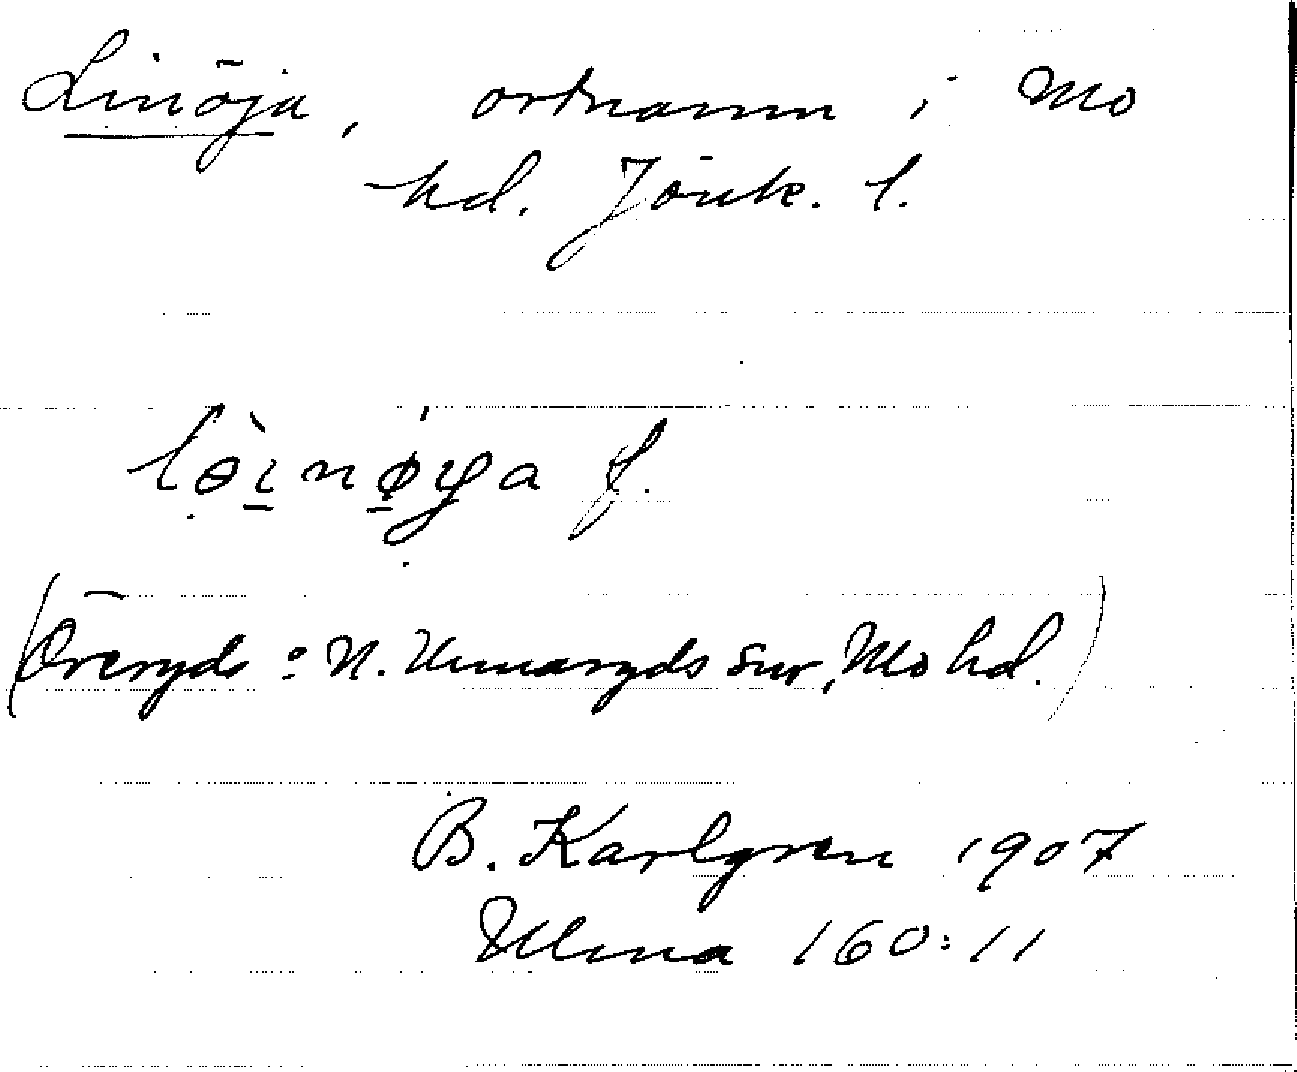 Linöja, ortnamn i Mo
hd. Jönk. l.
lɵ̀ɪnø̍ya f.
(Öreryds o N. Unnaryds snr, Mo hd.)
B. Karlgren 1907
Ulma 160:11